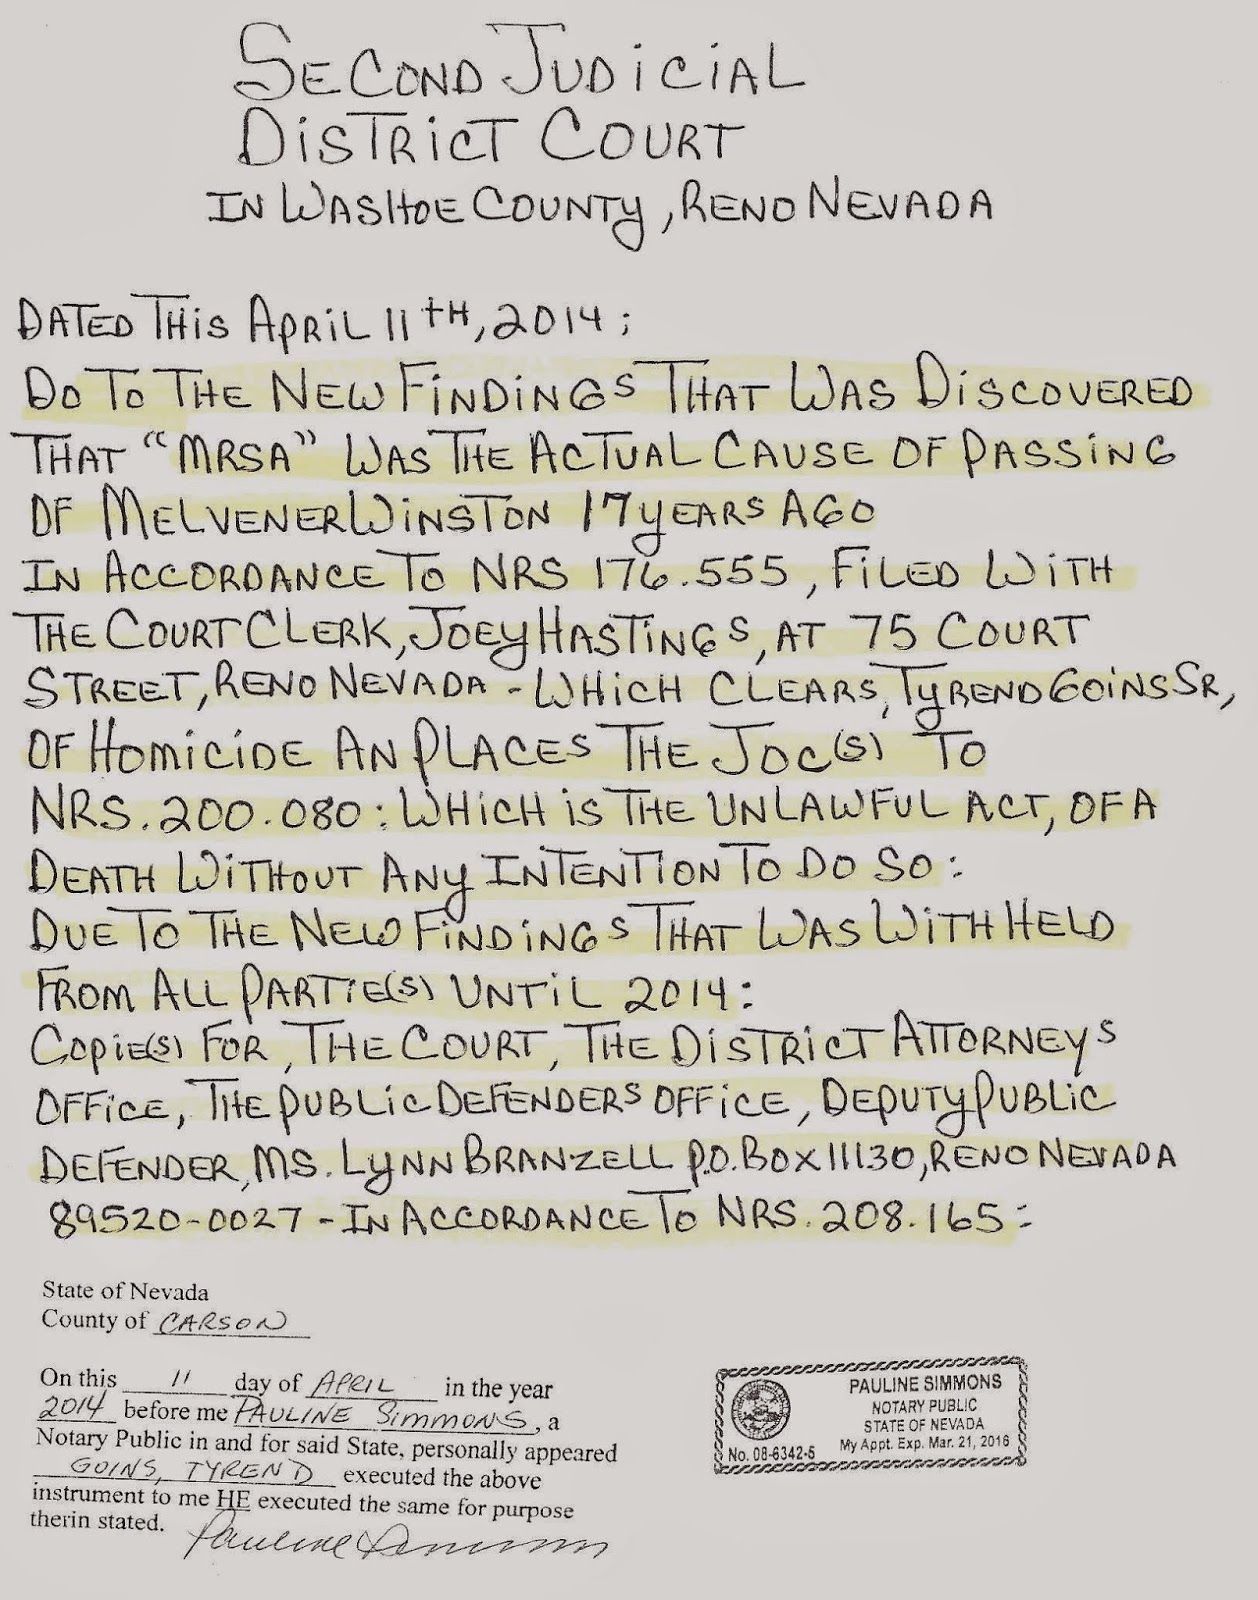 SECOND JUDICIAL
DISTRICT COURT
IN WASHOE COUNTY, RENO NEVADA
DATED THIS APRIL 11TH, 2014;
DO TO THE NEW FINDINGS THAT WAS DISCOVERED
THAT "MRSA" WAS THE ACTUAL CAUSE OF PASSING
OF MELVENER WINSTON 17 YEARS AGO
IN ACCORDANCE TO NRS 176.555, FILED WITH
THE COURT CLERK, JOEY HASTINGS, AT 75 COURT
STREET, RENO NEVADA - WHICH CLEARS, TYREND GOINS SR,
OF HOMICIDE AN PLACES THE JOC(S) TO
NRS. 200.080: WHICH IS THE UNLAWFUL ACT, OF A
DEATH WITHOUT ANY INTENTION TO DO SO:
DUE TO THE NEW FINDINGS THAT WAS WITH HELD
FROM ALL PARTIE(S) UNTIL 2014:
COPIE(S) FOR, THE COURT, THE DISTRICT ATTORNEYS
OFFICE, THE PUBLIC DEFENDERS OFFICE, DEPUTY PUBLIC
DEFENDER, MS. LYNN BRANZELL P.O. BOX 11130, RENO NEVADA
89520-0027 - IN ACCORDANCE TO NRS. 208.165:
State of Nevada
County of CARSON
On this 11 day of APRIL in the year
2014 before me PAULINE SIMMONS, a
Notary Public in and for said State, personally appeared
GOINS, TYREND executed the above
instrument to me HE executed the same for purpose
therin stated. Pauline Simmons
PAULINE SIMMONS
NOTARY PUBLIC
STATE OF NEVADA
No. 08-6342-5 My Appt. Exp. Mar. 21, 2016